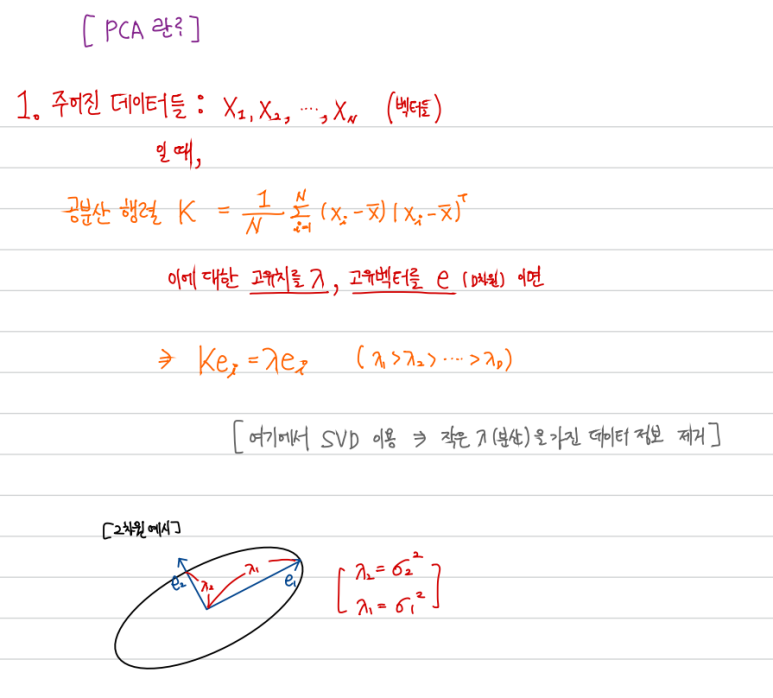 [ PCA 란? ]
1. 주어진 데이터들 : X₁, X₂, ⋯, X_N (벡터들)
일 때,
공분산 행렬 K = 1/N Σ_{i=1}^{N} (x_i - x̄)(x_i - x̄)^T
이에 대한 고유치를 λ, 고유벡터를 e (D차원) 이면
⇒ Ke_i = λe_i (λ₁ > λ₂ > ⋯ > λ_D)
[ 여기에서 SVD 이용 ⇒ 작은 λ(분산)을 가진 데이터 정보 제거 ]
[2차원 예시]
e₂ λ₂ λ₁ e₁
λ₂ = σ₂²
λ₁ = σ₁²